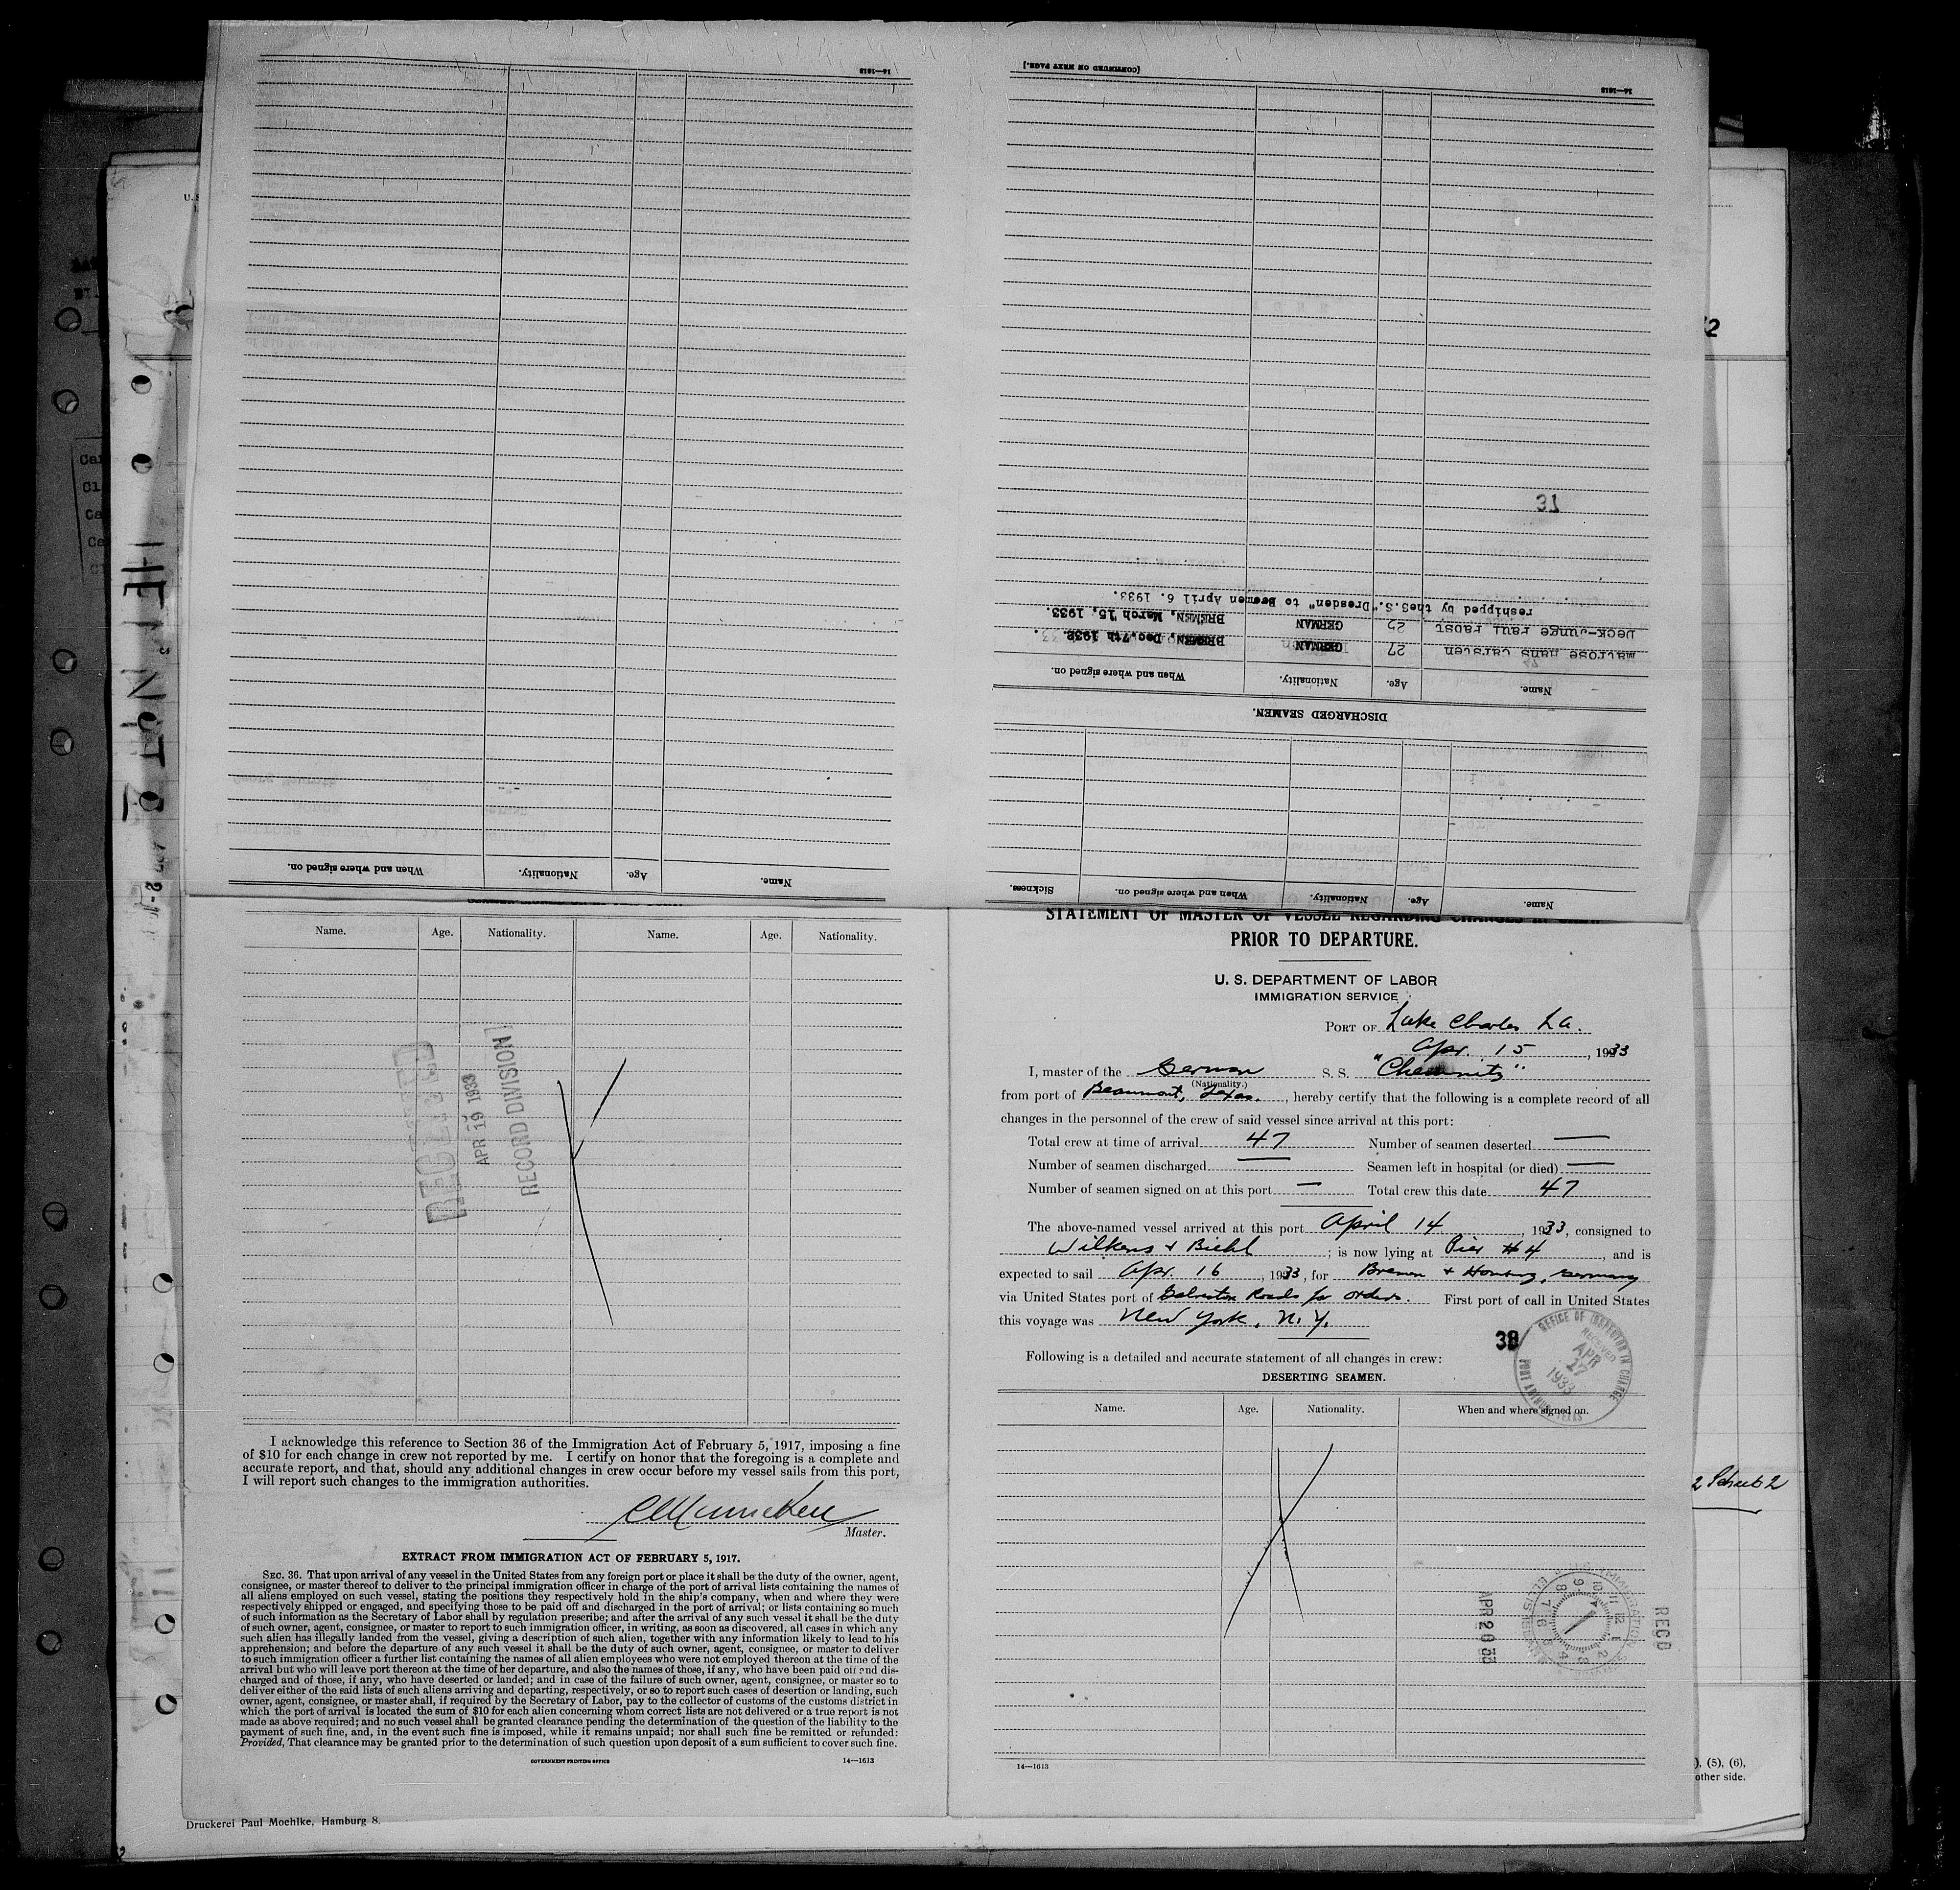 14—1613
Name.
Age.
Nationality.
When and where signed on.
[CONTINUED ON NEXT PAGE.]
14—1613
Name.
Age.
Nationality.
When and where signed on.
Sickness.
DISCHARGED SEAMEN.
Name.
Age.
Nationality.
When and where signed on.
Matrose Hans Carsten 27 GERMAN BREMEN, Dec. 7th 1932.
Deck-Junge Paul Pabst GERMAN BREMEN, March 15, 1933.
reshipped by the S.S."Dresden" to Bremen April 6. 1933.
31
Name. Age. Nationality. Name. Age. Nationality.
RECEIVED
APR 19 1933
RECORD DIVISION
I acknowledge this reference to Section 36 of the Immigration Act of February 5, 1917, imposing a fine
of $10 for each change in crew not reported by me. I certify on honor that the foregoing is a complete and
accurate report, and that, should any additional changes in crew occur before my vessel sails from this port,
I will report such changes to the immigration authorities.
Master.
EXTRACT FROM IMMIGRATION ACT OF FEBRUARY 5, 1917.
SEC. 36. That upon arrival of any vessel in the United States from any foreign port or place it shall be the duty of the owner, agent,
consignee, or master thereof to deliver to the principal immigration officer in charge of the port of arrival lists containing the names of
all aliens employed on such vessel, stating the positions they respectively hold in the ship's company, when and where they were
respectively shipped or engaged, and specifying those to be paid off and discharged in the port of arrival; or lists containing so much
of such information as the Secretary of Labor shall by regulation prescribe; and after the arrival of any such vessel it shall be the duty
of such owner, agent, consignee, or master to report to such immigration officer, in writing, as soon as discovered, all cases in which any
such alien has illegally landed from the vessel, giving a description of such alien, together with any information likely to lead to his
apprehension; and before the departure of any such vessel it shall be the duty of such owner, agent, consignee, or master to deliver
to such immigration officer a further list containing the names of all alien employees who were not employed thereon at the time of the
arrival but who will leave port thereon at the time of her departure, and also the names of those, if any, who have been paid off and dis-
charged and of those, if any, who have deserted or landed; and in case of the failure of such owner, agent, consignee, or master so to
deliver either of the said lists of such aliens arriving and departing, respectively, or so to report such cases of desertion or landing, such
owner, agent, consignee, or master shall, if required by the Secretary of Labor, pay to the collector of customs of the customs district in
which the port of arrival is located the sum of $10 for each alien concerning whom correct lists are not delivered or a true report is not
made as above required; and no such vessel shall be granted clearance pending the determination of the question of the liability to the
payment of such fine, and, in the event such fine is imposed, while it remains unpaid; nor shall such fine be remitted or refunded:
Provided, That clearance may be granted prior to the determination of such question upon deposit of a sum sufficient to cover such fine.
GOVERNMENT PRINTING OFFICE 14—1613
Druckerei Paul Moehlke, Hamburg 8.
STATEMENT OF MASTER OF VESSEL REGARDING CHANGES IN CREW
PRIOR TO DEPARTURE.
U. S. DEPARTMENT OF LABOR
IMMIGRATION SERVICE
PORT OF Lake Charles La.
Apr. 15, 1933
I, master of the German S. S. "Chemnitz"
(Nationality.)
from port of Beaumont, Texas., hereby certify that the following is a complete record of all
changes in the personnel of the crew of said vessel since arrival at this port:
Total crew at time of arrival 47 Number of seamen deserted —
Number of seamen discharged — Seamen left in hospital (or died) —
Number of seamen signed on at this port — Total crew this date 47
The above-named vessel arrived at this port April 14, 1933, consigned to
Wilkens & Biehl; is now lying at Pier #4, and is
expected to sail Apr. 16, 1933, for Bremen & Hamburg, Germany
via United States port of Galveston Roads for orders. First port of call in United States
this voyage was New York, N.Y.
38
OFFICE OF INSPECTOR IN CHARGE
RECEIVED
APR
27
1933
PORT ARTHUR TEXAS
Following is a detailed and accurate statement of all changes in crew:
DESERTING SEAMEN.
Name. Age. Nationality. When and where signed on.
APR 20
RECD
14—1613
), (5), (6),
other side.